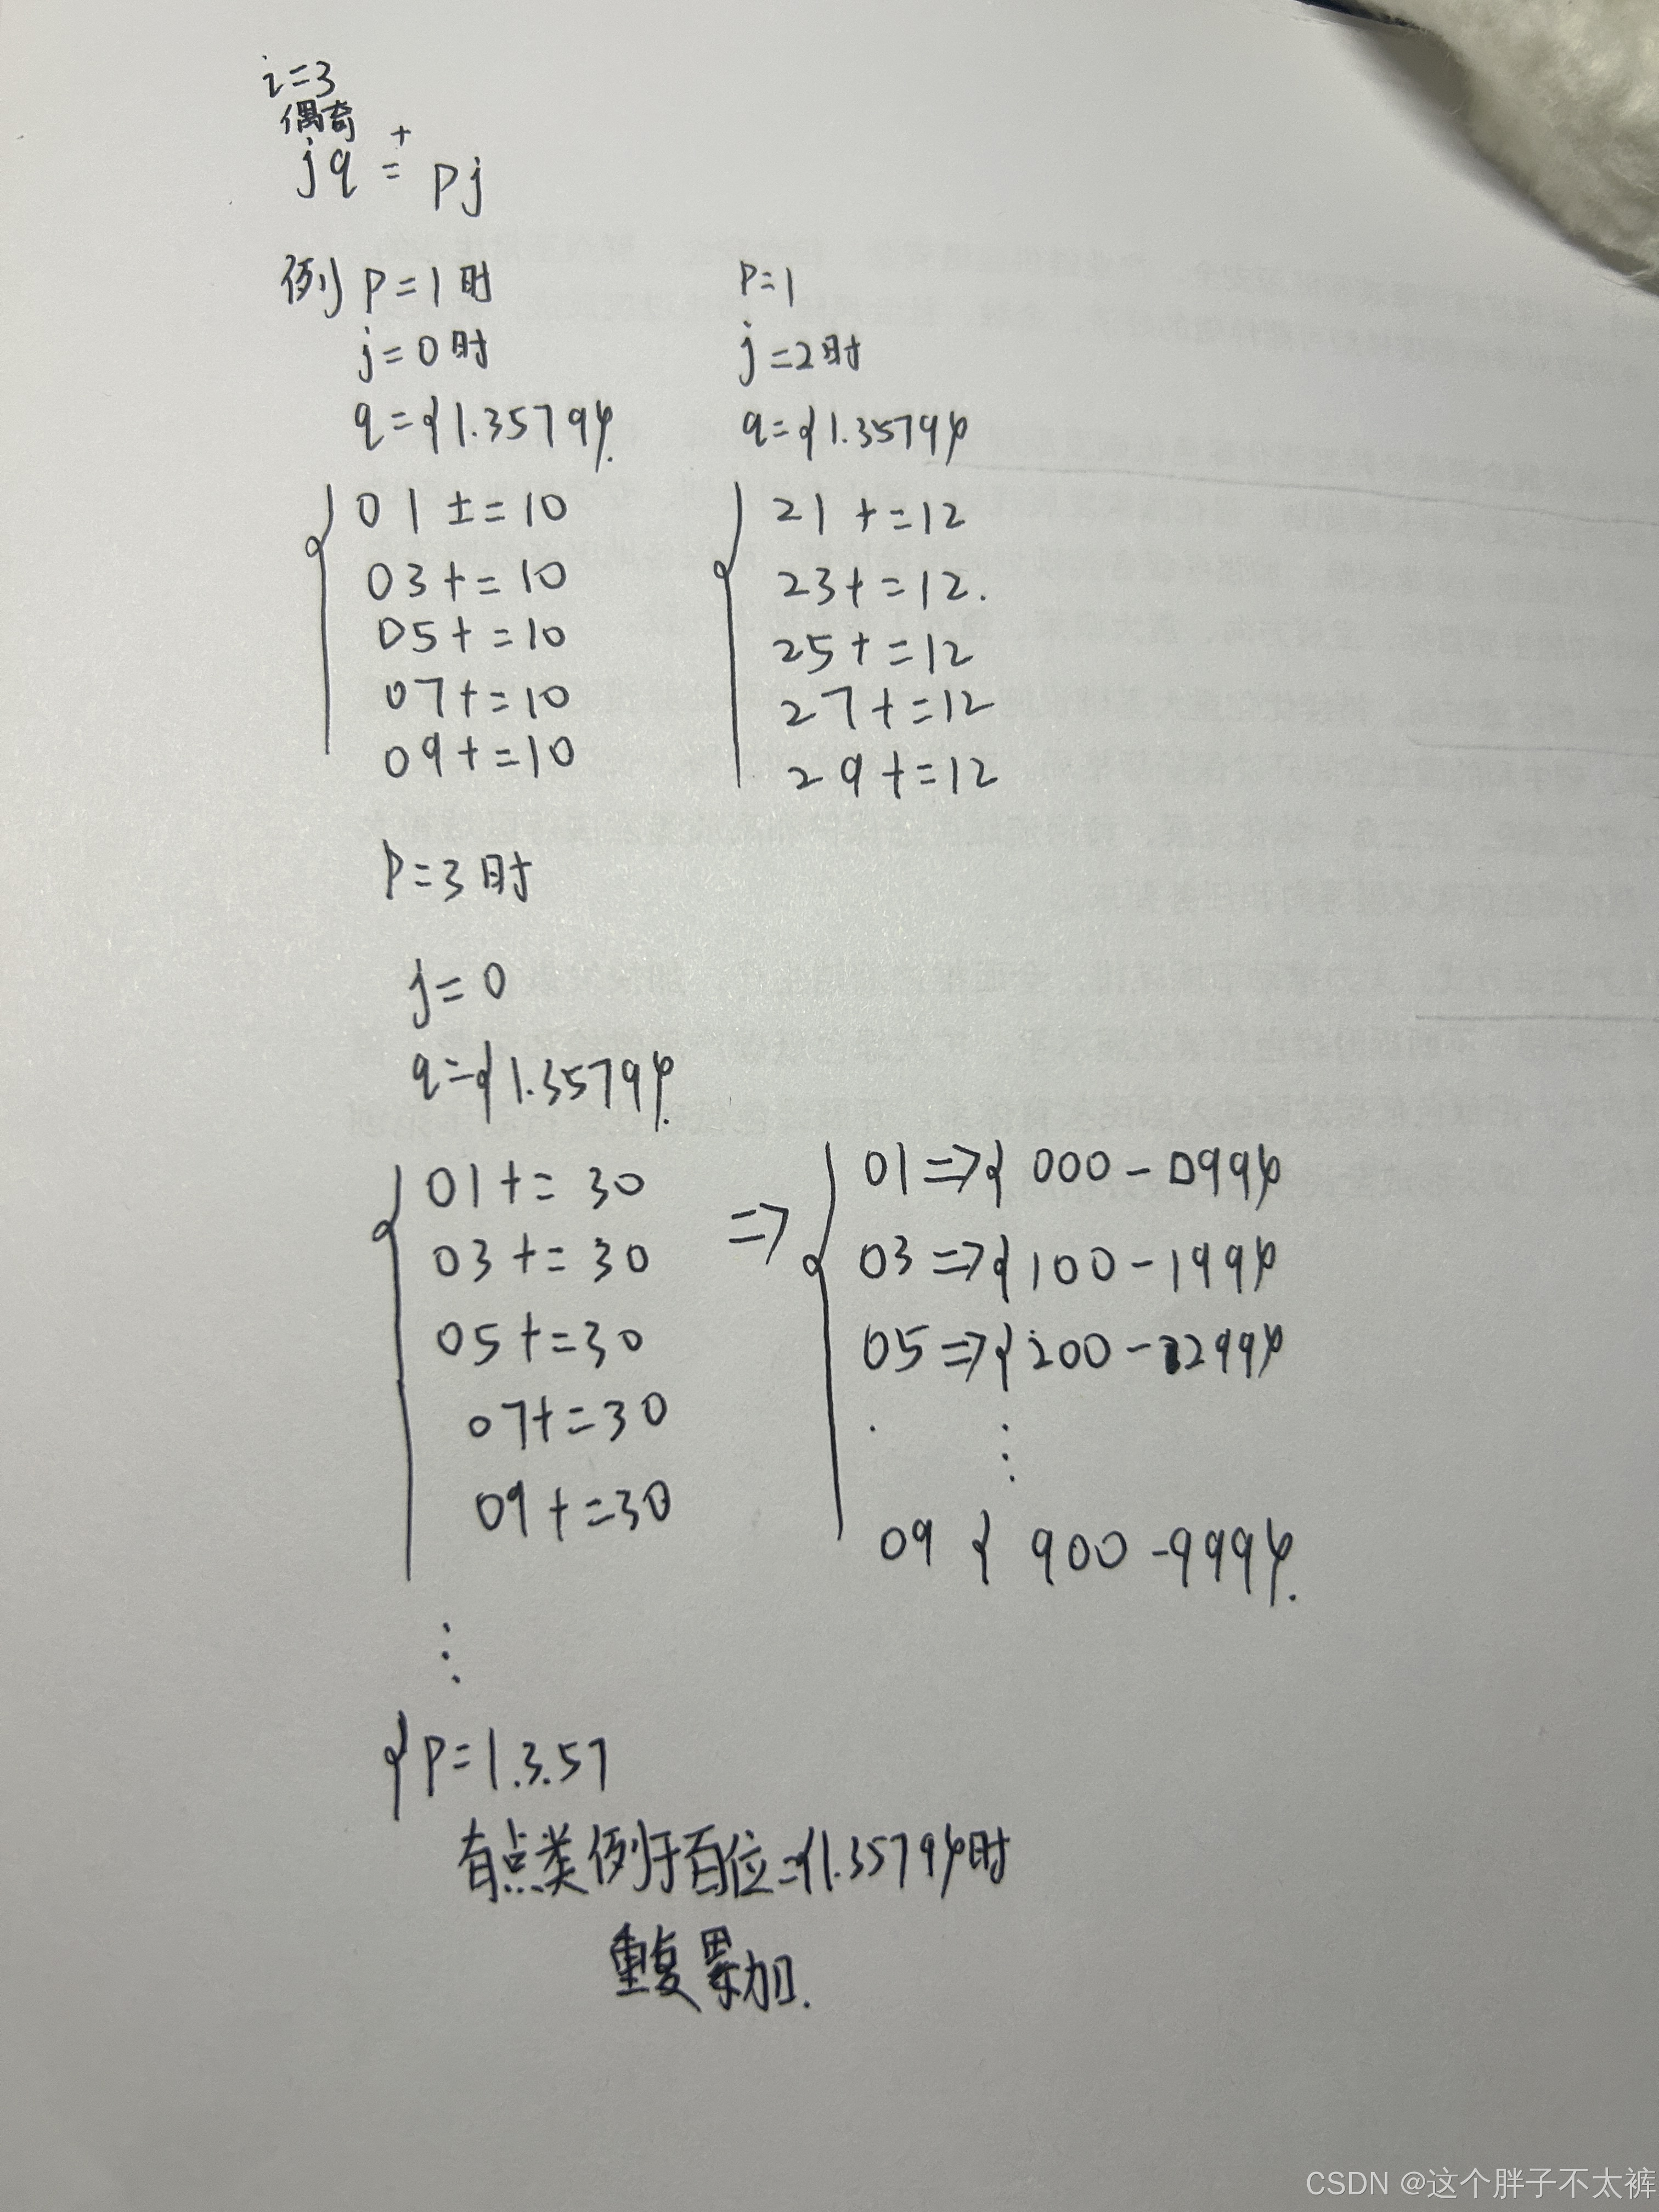 i=3
偶奇
jq += pj
例 P=1时
j=0时
q={1.3579}.
01 += 10
03 += 10
05 += 10
07 += 10
09 += 10
P=1
j=2时
q={1.3579}
21 += 12
23 += 12.
25 += 12
27 += 12
29 += 12
P=3时
j=0
q={1.3579}.
01 += 30
03 += 30
05 += 30
07 += 30
09 += 30
=>
01 => {000-099}
03 => {100-199}
05 => {200-299}
⋮
09 {900-999}.
⋮
{P=1.3.57
有点类例于百位={1.3579}时
重复累加.
CSDN @这个胖子不太裤